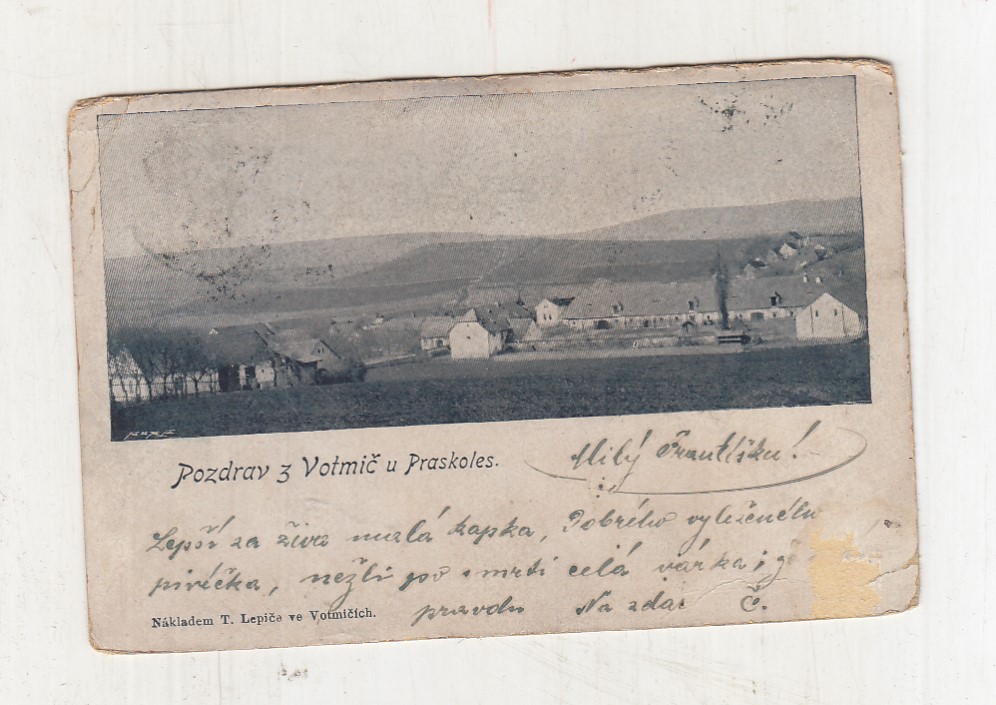 Pozdrav z Votmič u Praskoles.
Milý Františku!
Lepší za živa malá kapka, Dobrého vyleženého
pivéčka, nežli po smrti celá várka i
Nákladem T. Lepiče ve Votmičích.
pravdu Na zdar Č.